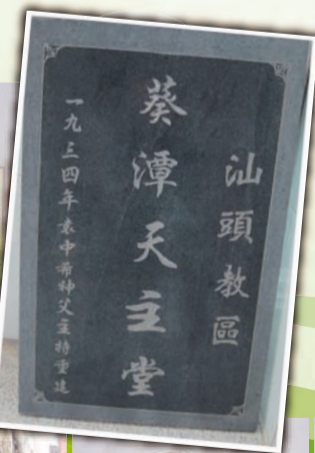 汕頭教區
葵潭天主堂
一九三四年袁中希神父主持重建